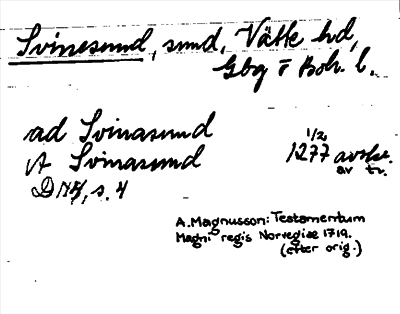 Svinesund, sund, Vätte hd,
Gbg o Boh. l.
ad Svinasund
Svinasund
1/2, 1277 avskr. av tr.
DN 4, s. 4
A. Magnusson: Testamentum
Magni regis Norvegiæ 1719.
(efter orig.)